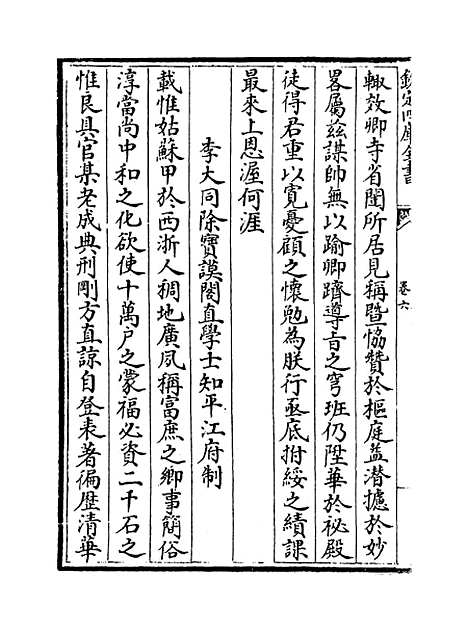 欽定四庫全書
卷六
輙效卿寺省闥所居見稱暨恊贊於樞庭益潛攄於妙
畧屬兹謀帥無以踰卿躋導音之穹班仍陞華於祕殿
徒得君重以寛憂顧之懷勉為朕行亟底拊綏之績課
最來上恩渥何涯
李大同除寳謨閣直學士知平江府制
載惟姑蘇甲於西浙人稠地廣夙稱富庶之鄉事簡俗
淳當尚中和之化欲使十萬户之蒙福必資二千石之
惟良具官某老成典刑剛方直諒自登表著徧歴清華